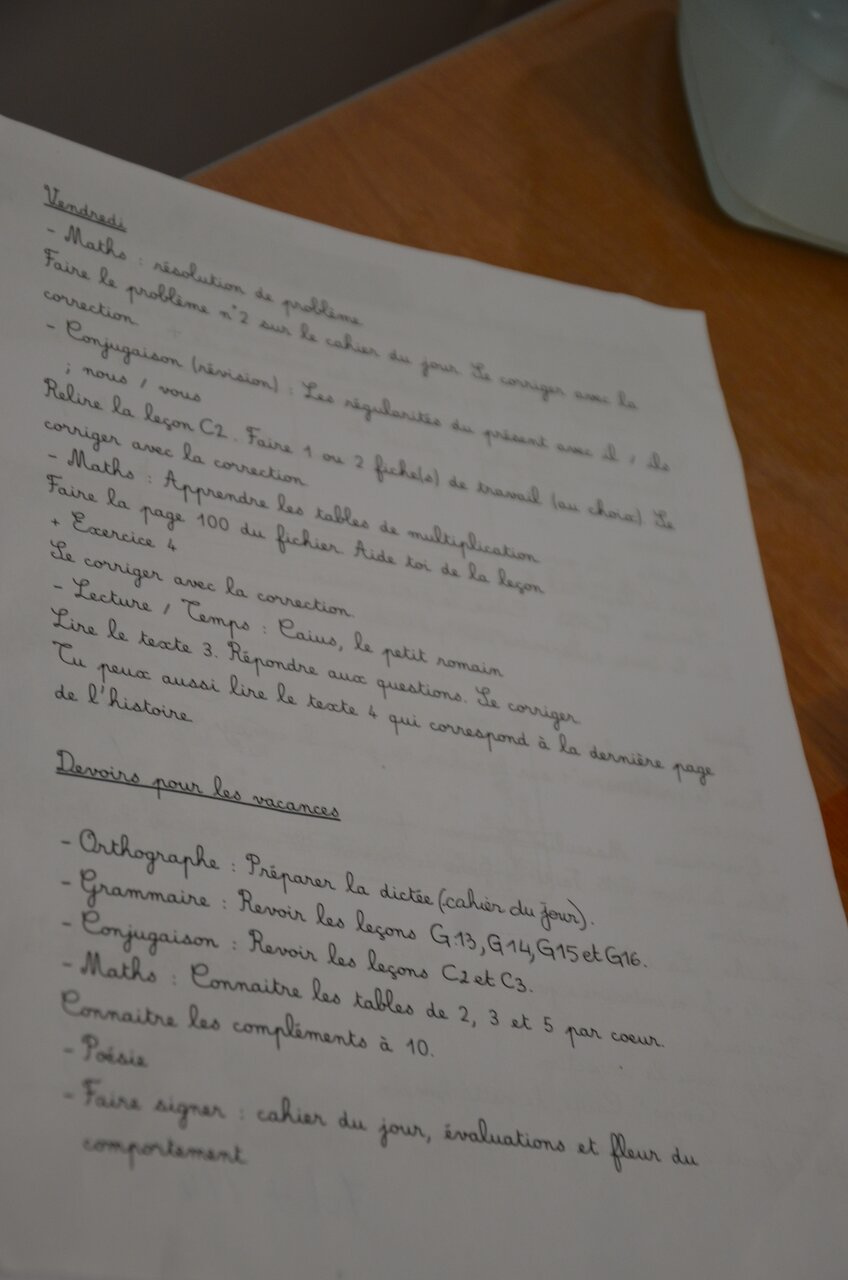 Vendredi
- Maths : résolution de problème.
Faire le problème n°2 sur le cahier du jour. Se corriger avec la
correction.
- Conjugaison (révision) : Les régularités du présent avec il / ils
; nous / vous
Relire la leçon C2. Faire 1 ou 2 fiche(s) de travail (au choix). Se
corriger avec la correction.
- Maths : Apprendre les tables de multiplication
Faire la page 100 du fichier. Aide toi de la leçon
+ Exercice 4
Se corriger avec la correction.
- Lecture / Temps : Caius, le petit romain
Lire le texte 3. Répondre aux questions. Se corriger.
Tu peux aussi lire le texte 4 qui correspond à la dernière page
de l'histoire.
Devoirs pour les vacances
- Orthographe : Préparer la dictée (cahier du jour).
- Grammaire : Revoir les leçons G13, G14, G15 et G16.
- Conjugaison : Revoir les leçons C2 et C3.
- Maths : Connaitre les tables de 2, 3 et 5 par coeur.
Connaitre les compléments à 10.
- Poésie
- Faire signer : cahier du jour, évaluations et fleur du
comportement